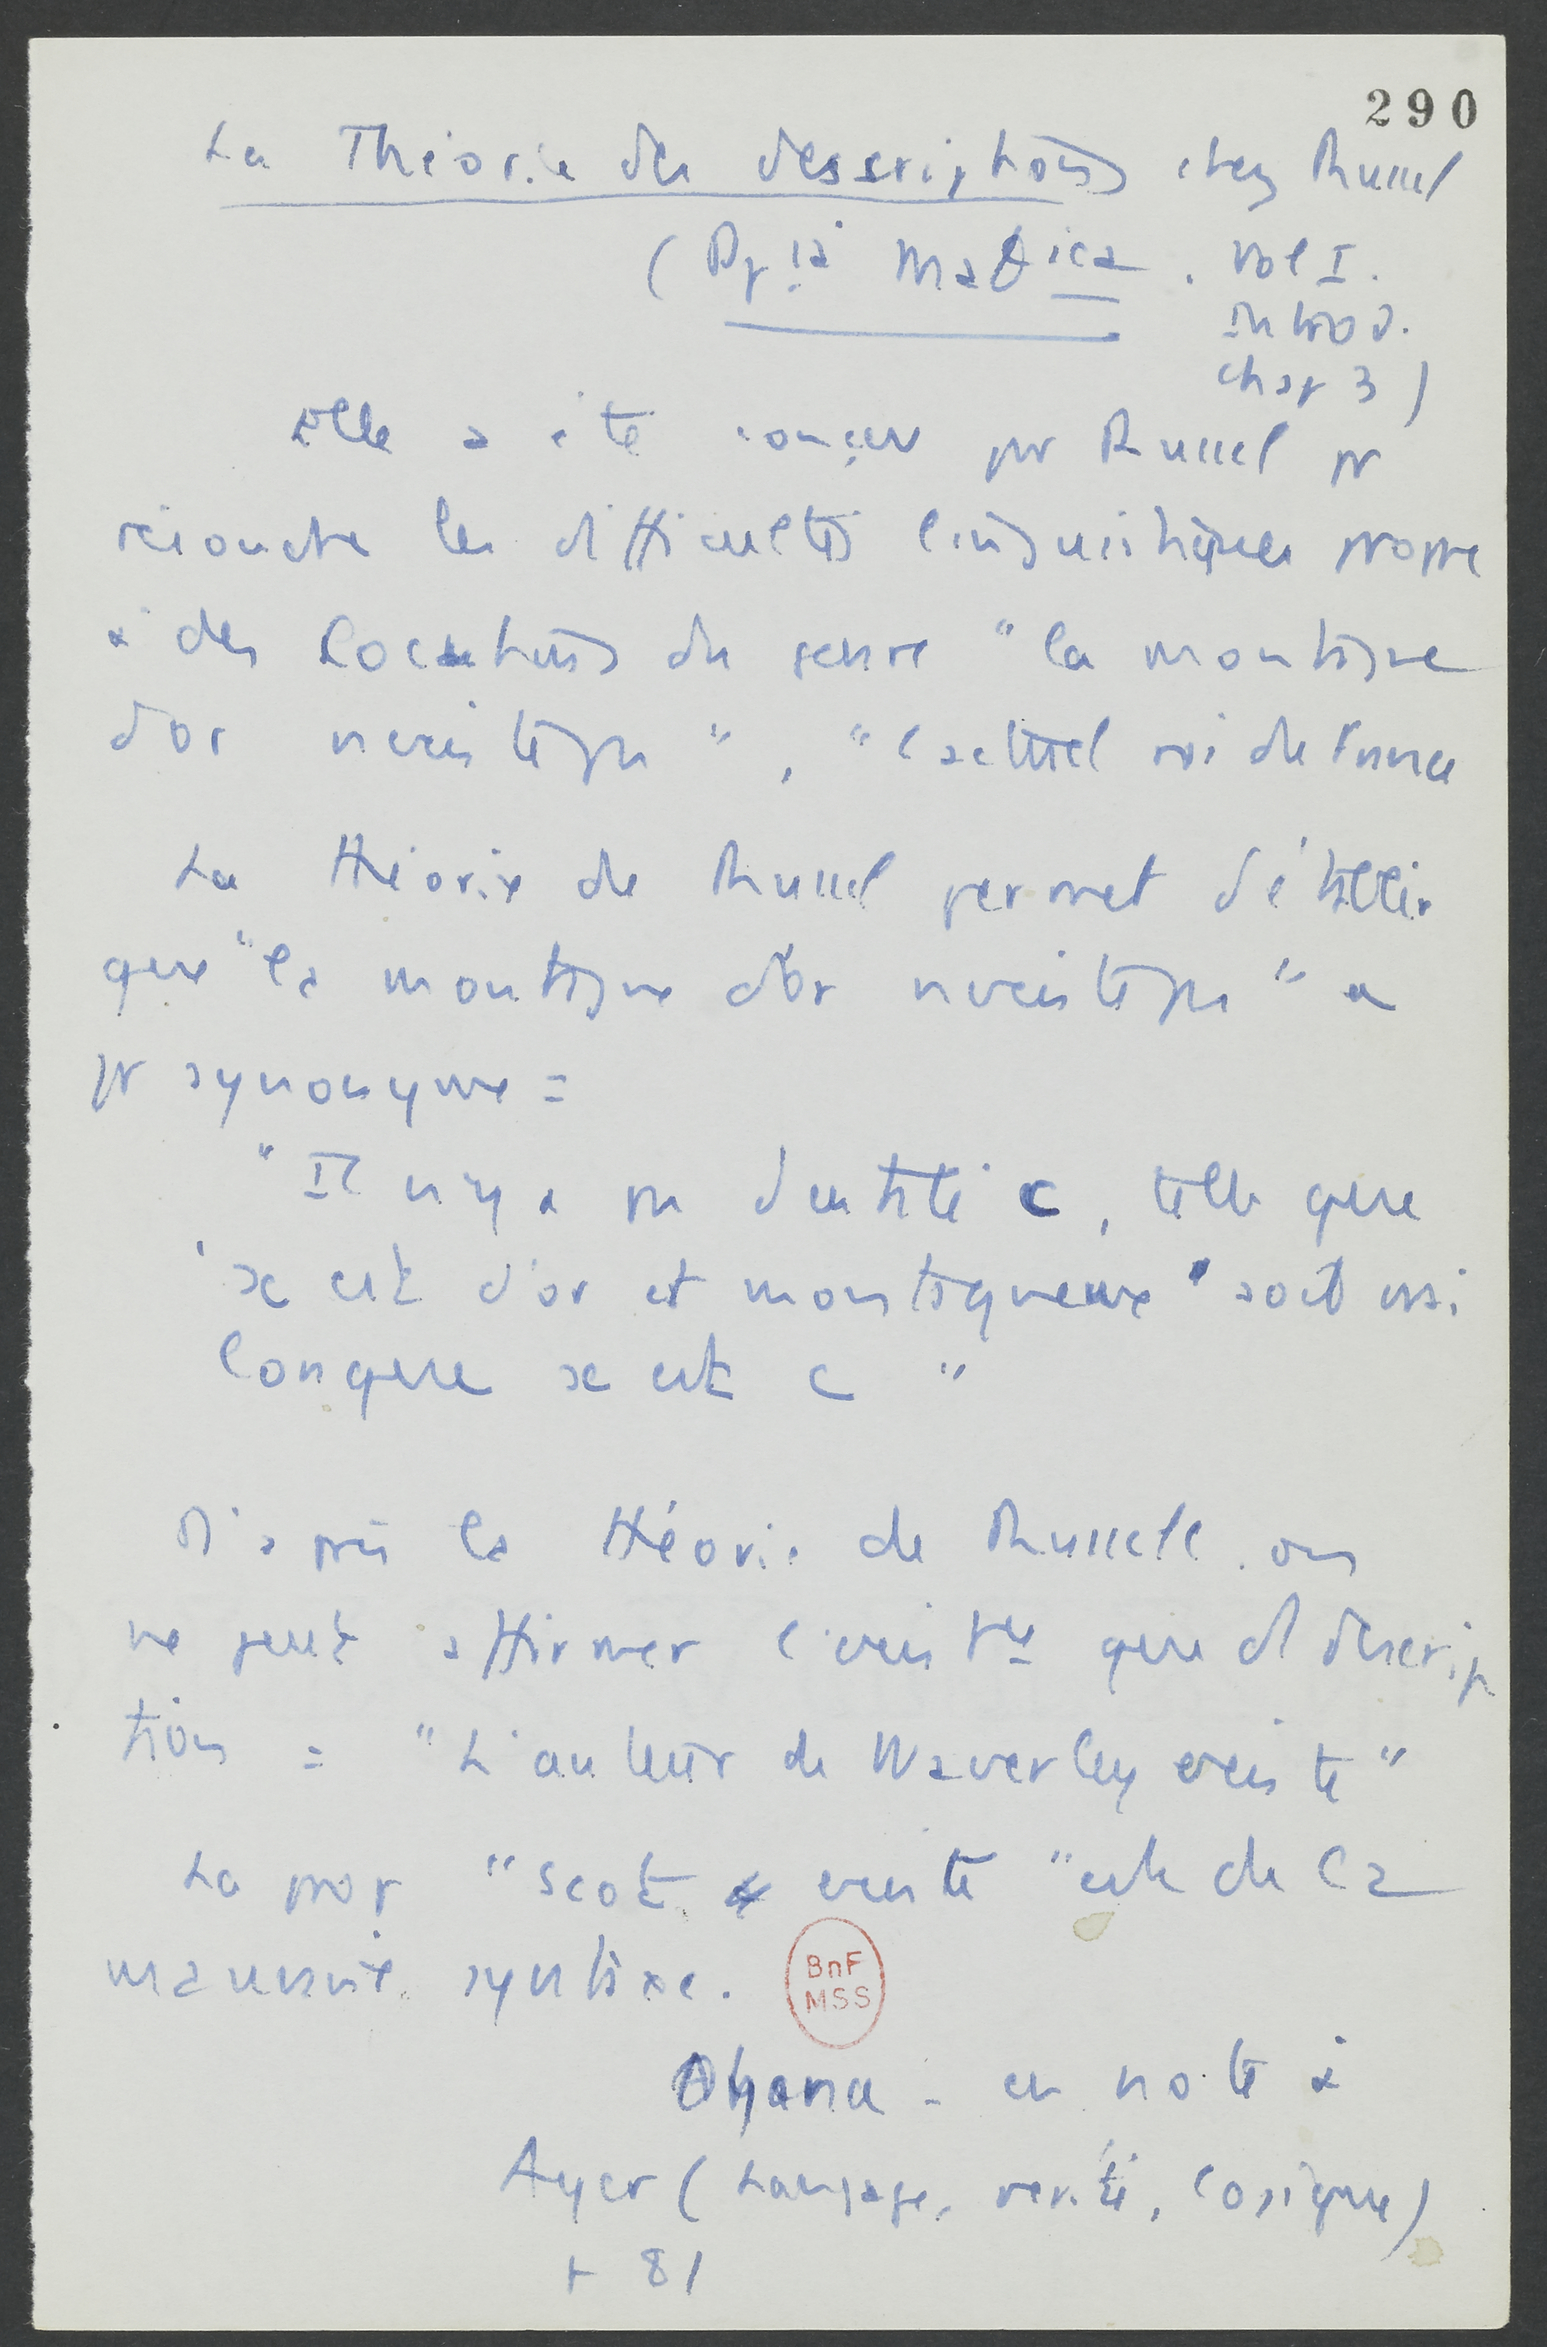 290
La Théorie des descriptions chez Russel
(Pr ia Mathica. Vol I.
Introd.
chap 3)
Elle a été conçue par Russel pr
résoudre les difficultés linguistiques propre
à des locutions du genre "la montagne
d'or n'existe pas", "l'actuel roi de France
La théorie de Russel permet d'établir
que "la montagne d'or n'existe pas" a
pr synonyme =
"Il n'y a pas d'entité c, telle que
'x est d'or et montagneuse' soit vrai
lorsque x est c"
D'après la théorie de Russell on
ne peut affirmer l'existce que d descrip
tions = "L'auteur de Waverley existe"
La prop "Scot existe" est de la
mauvaise syntaxe.
BnF
MSS
Ohana - en note à
Ayer (Langage, vérité, logique)
p 81